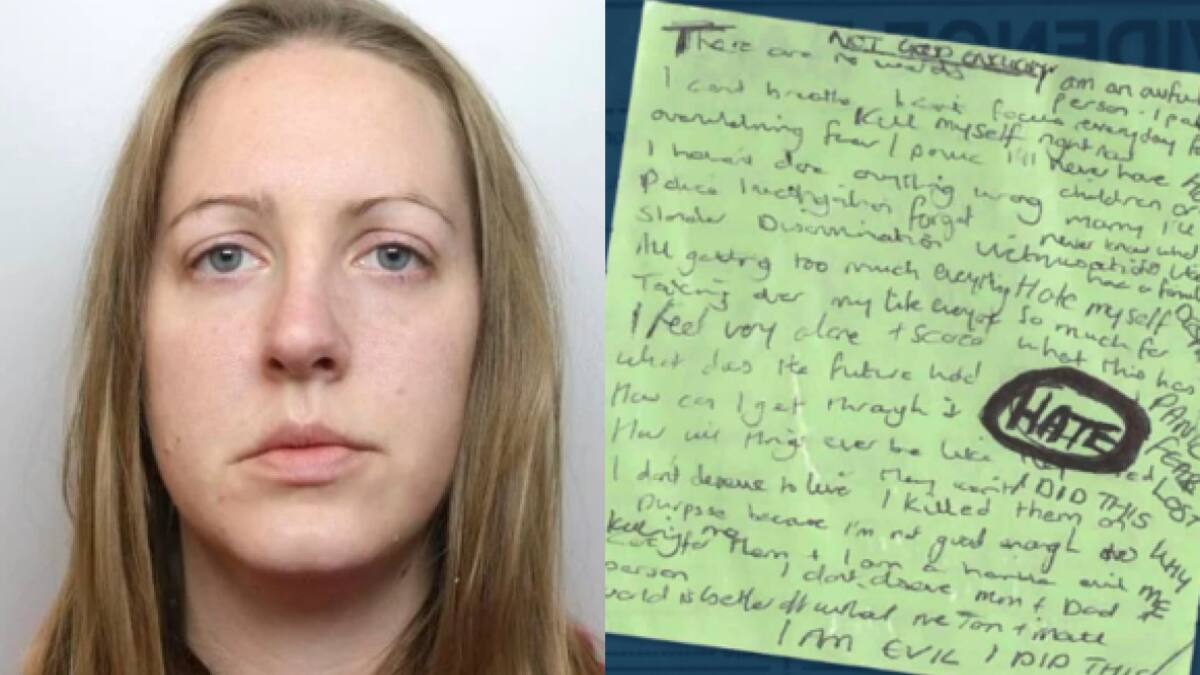 VIDENCE
NOT GOOD ENOUGH
There are no words am an awful
person - I pay
I can't breathe I can't focus everyday
Kill myself right now
overwhelming fear / panic I'll never have
I haven't done anything wrong children or
Police investigation forget marry I'll
never know what
Slander Discrimination Victimisation
have a family
All getting too much everything Hate myself
Taking over my life everyone so much for
I feel very alone + scared what this has
What does the future hold PANIC
How can I get through it HATE FEAR
How will things ever be like they LOST
they won't I DID THIS
I don't deserve to live I killed them on
purpose because I'm not good enough to WHY
killing me ME
care for them + I am a horrible evil
person I don't deserve mum + Dad
world is better off without me Tom + matt
I AM EVIL I DID THIS